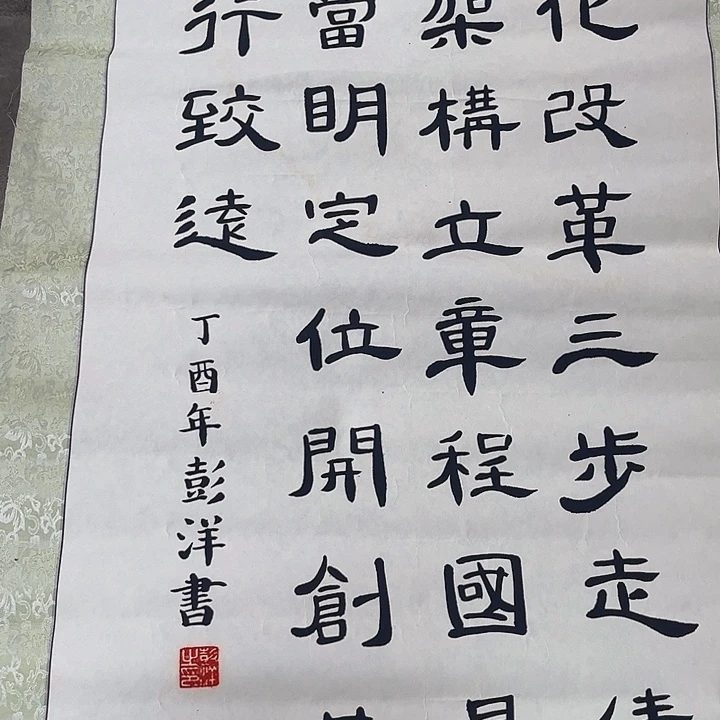 化改革三步走
架構立章程國
當明定位開創
行致遠
丁酉年彭洋書
彭洋之印